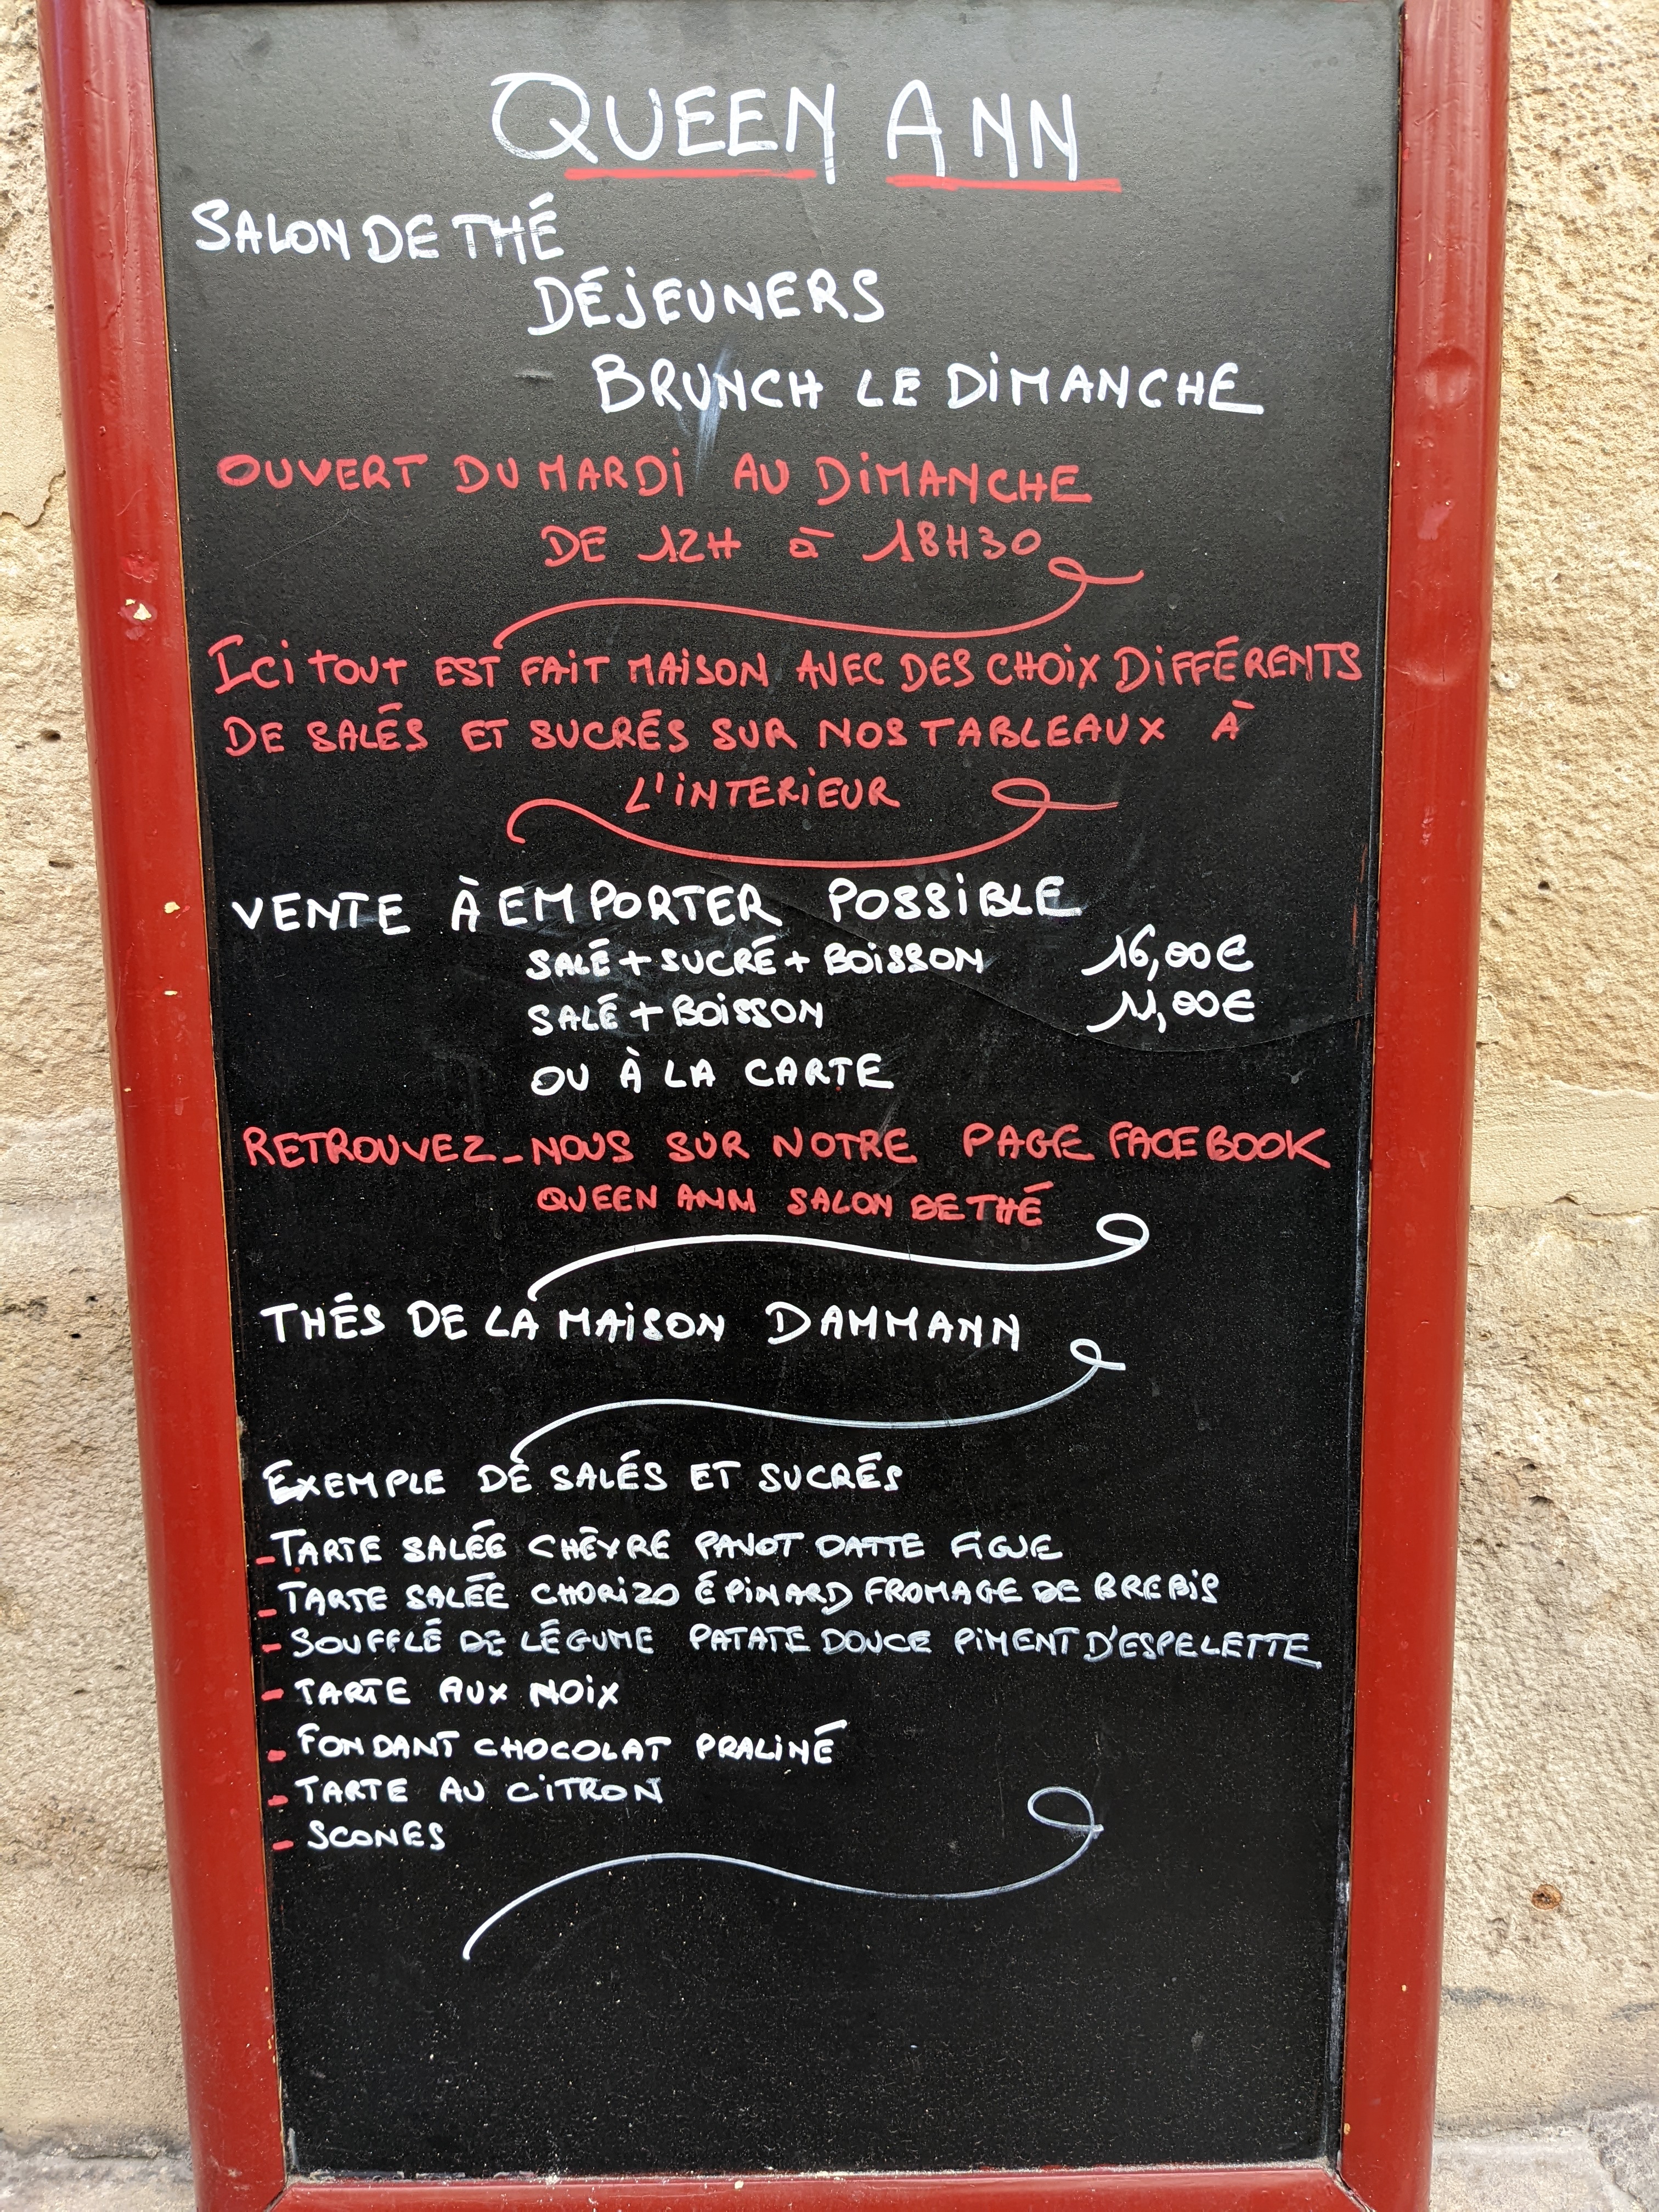 QUEEN ANN
SALON DE THÉ
DÉJEUNERS
BRUNCH LE DIMANCHE
OUVERT DU MARDI AU DIMANCHE
DE 12H à 18H30
ICI TOUT EST FAIT MAISON AVEC DES CHOIX DIFFÉRENTS
DE SALÉS ET SUCRÉS SUR NOS TABLEAUX À
L'INTERIEUR
VENTE À EMPORTER POSSIBLE
SALÉ + SUCRÉ + BOISSON 16,00€
SALÉ + BOISSON 11,00€
OU À LA CARTE
RETROUVEZ-NOUS SUR NOTRE PAGE FACEBOOK
QUEEN ANN SALON DE THÉ
THÉS DE LA MAISON DAMMANN
EXEMPLE DE SALÉS ET SUCRÉS
- TARTE SALÉE CHÈVRE PAVOT DATTE FIGUE
- TARTE SALÉE CHORIZO ÉPINARD FROMAGE DE BREBIS
- SOUFFLÉ DE LÉGUME PATATE DOUCE PIMENT D'ESPELETTE
- TARTE AUX NOIX
- FONDANT CHOCOLAT PRALINÉ
- TARTE AU CITRON
- SCONES